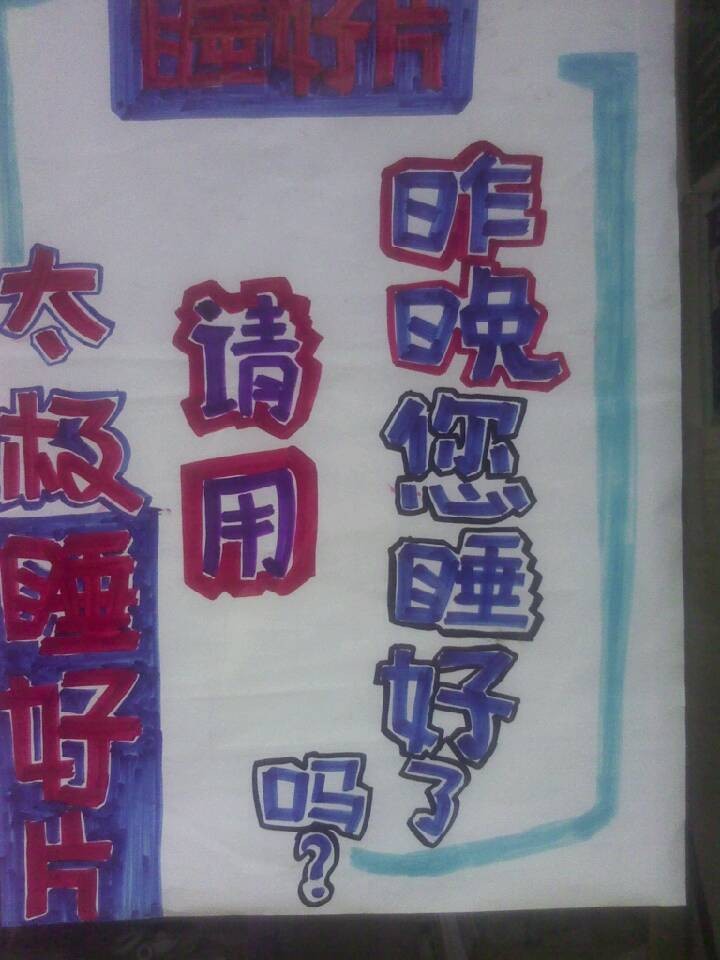 睡好片
昨晚您睡好了
吗?
请用
太极睡好片